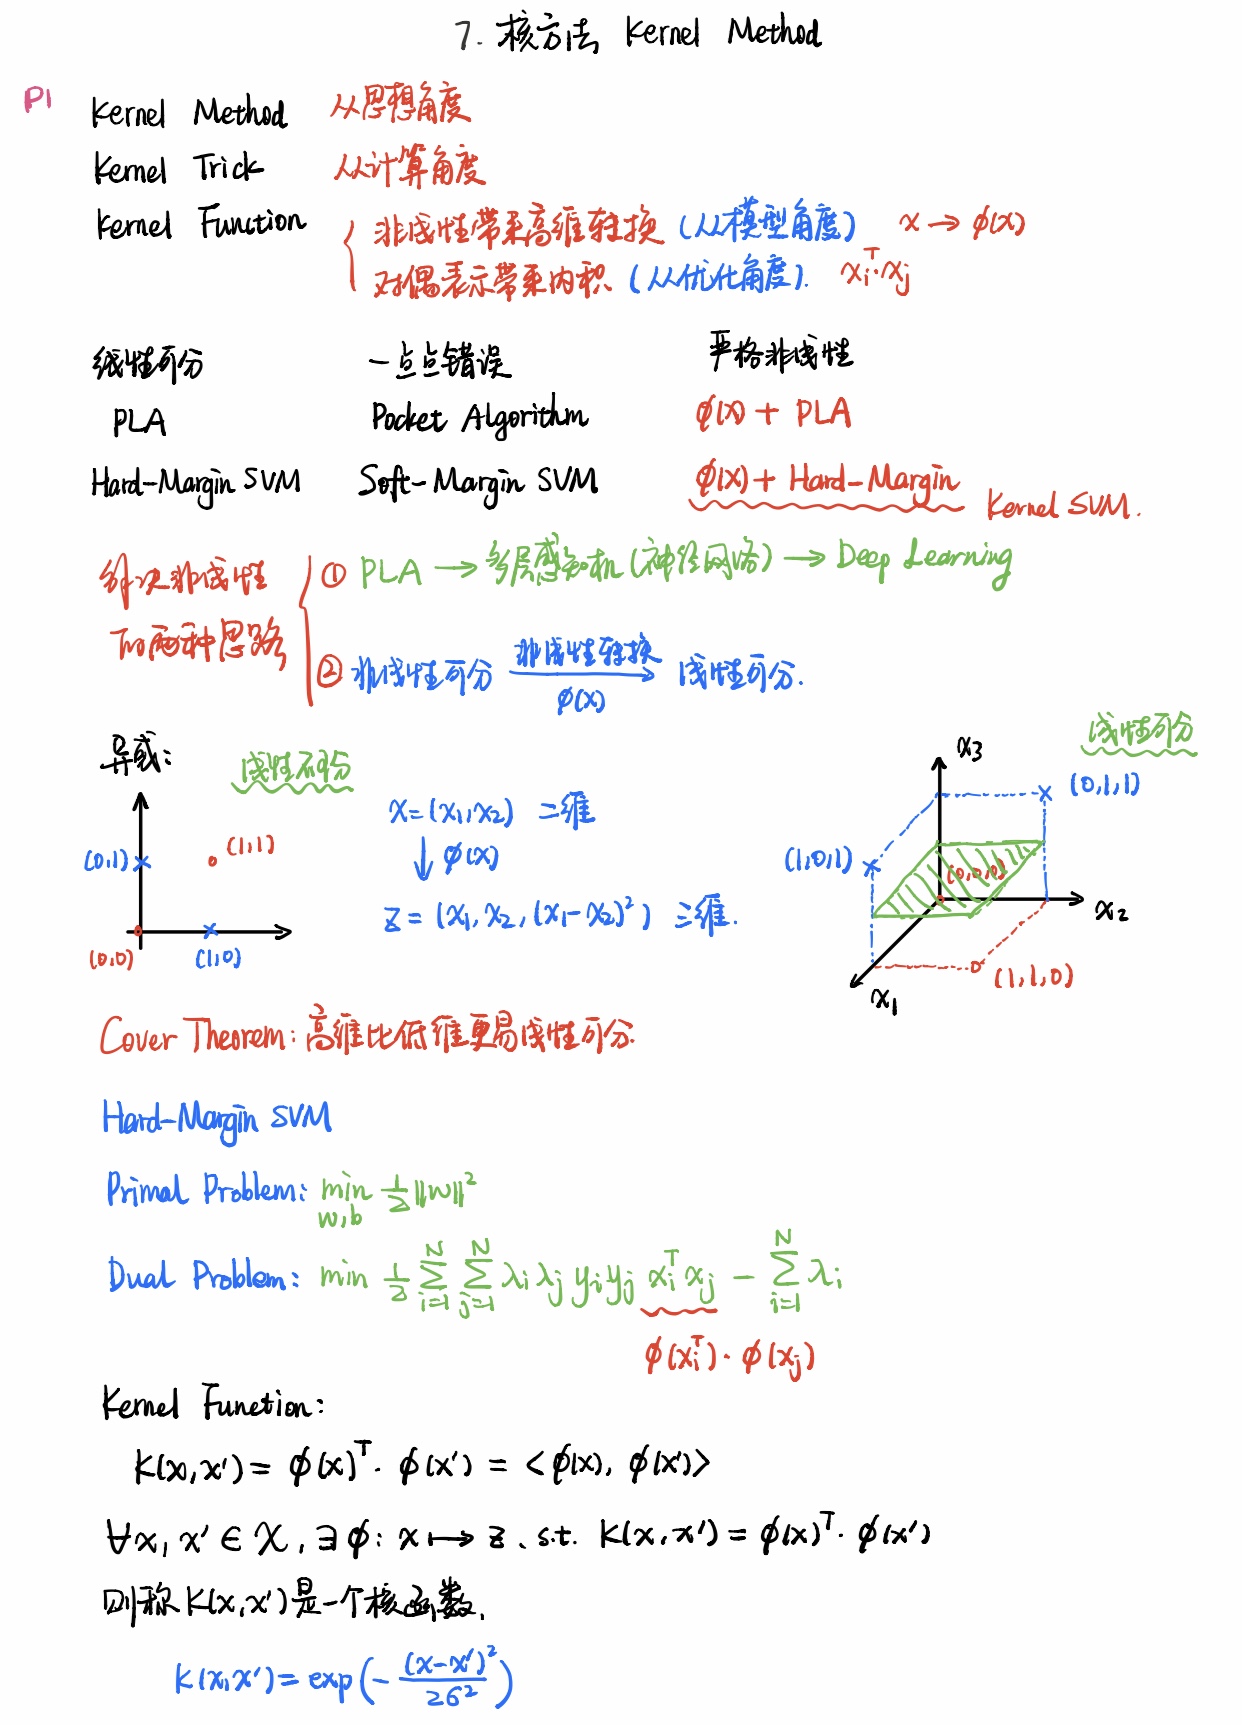 7. 核方法 Kernel Method
P1
Kernel Method 从思想角度
Kernel Trick 从计算角度
Kernel Function { 非线性带来高维转换 (从模型角度) x → φ(x)
对偶表示带来内积 (从优化角度). xᵢᵀ·xⱼ
线性可分 一点点错误 严格非线性
PLA Pocket Algorithm φ(x) + PLA
Hard-Margin SVM Soft-Margin SVM φ(x) + Hard-Margin Kernel SVM.
解决非线性
的两种思路
① PLA → 多层感知机 (神经网络) → Deep Learning
② 非线性可分 非线性转换 φ(x) → 线性可分.
异或: 线性不可分
(0,1) (1,1)
(0,0) (1,0)
x = (x₁, x₂) 二维
↓ φ(x)
z = (x₁, x₂, (x₁-x₂)²) 三维.
线性可分
x₃
(0,1,1)
(1,0,1)
(0,0,0)
x₂
(1,1,0)
x₁
Cover Theorem: 高维比低维更易线性可分.
Hard-Margin SVM
Primal Problem: min_{w,b} ½||w||²
Dual Problem: min ½ Σ_{i=1}^{N} Σ_{j=1}^{N} λᵢ λⱼ yᵢ yⱼ xᵢᵀ xⱼ - Σ_{i=1}^{N} λᵢ
φ(xᵢᵀ)·φ(xⱼ)
Kernel Function:
K(x,x') = φ(x)ᵀ·φ(x') = <φ(x), φ(x')>
∀x, x' ∈ X, ∃φ: x ↦ z、s.t. K(x,x') = φ(x)ᵀ·φ(x')
则称 K(x,x') 是一个核函数.
K(x,x') = exp(-(x-x')²/2σ²)